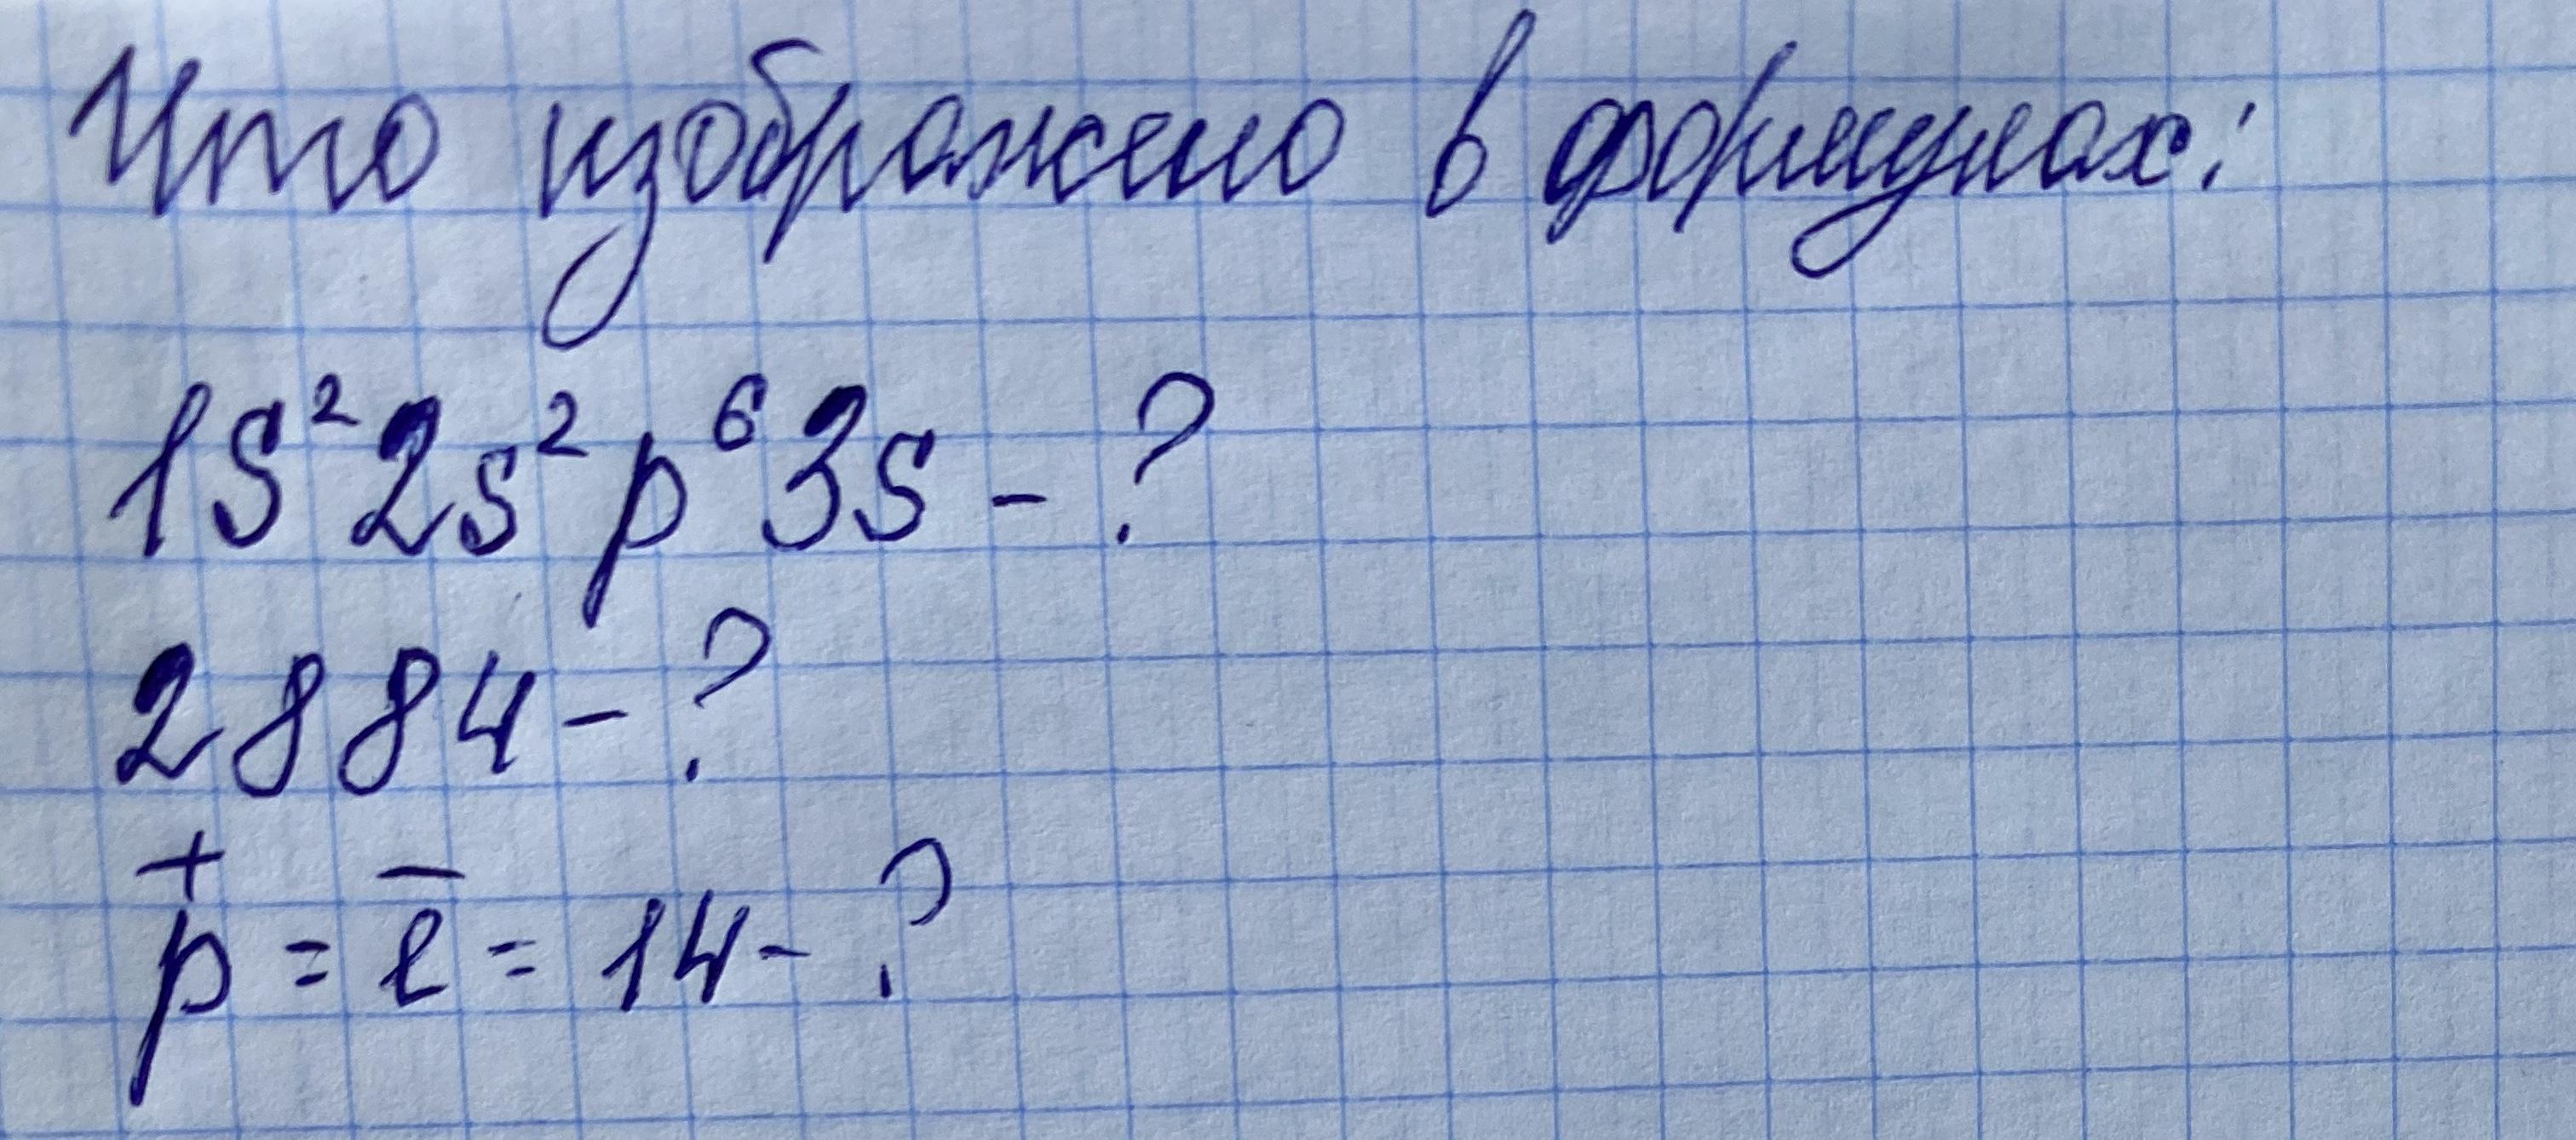 Что изображено в формулах:
1s²2s²p⁶3s - ?
2884 - ?
p⁺ = e⁻ = 14 - ?